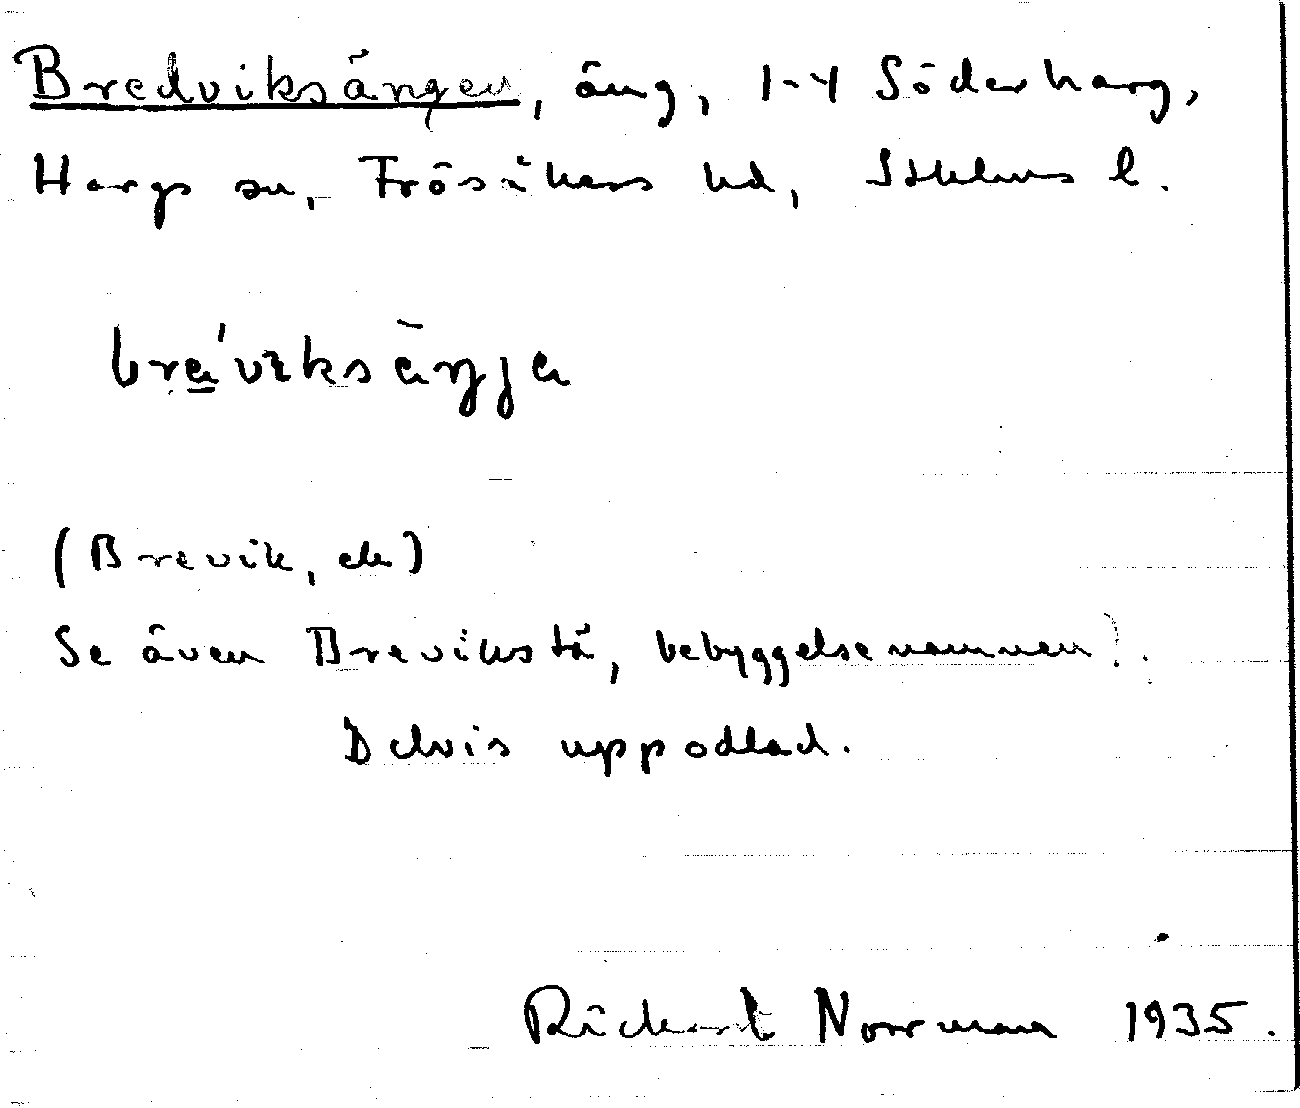 Bredviksängen, äng, 1-4 Söderharg,
Hargs sn, Frösåkers hd, Sthlms l.
brä́viksäŋja
(Brevik, ek)
Se även Brevikstå, bebyggelsenamnen!
Delvis uppodlad.
Rickard Norrman 1935.